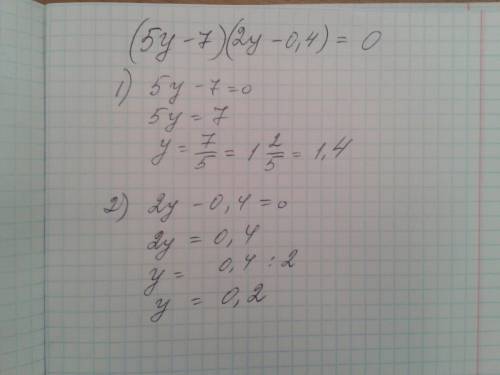 (5y-7)(2y-0,4) = 0
1) 5y-7=0
5y = 7
y = 7/5 = 1 2/5 = 1,4
2) 2y-0,4=0
2y = 0,4
y = 0,4 : 2
y = 0,2